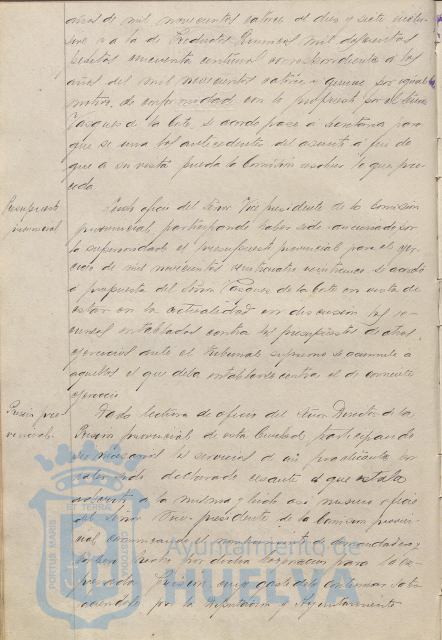 años de mil novecientos catorce al diez y siete inclu-
sive y a la de Prediales mil doscientas
pesetas cincuenta centimos correspondiente a los
años del mil novecientos catorce a quince por igual
motivo, de conformidad con lo propuesto por el Señor
Vazquez de la Corte, se acordó pase a Secretaria para
que se una los antecedentes del asunto á fin de
que a su vista pueda la Comisión resolver lo que pro-
ceda.
Presupuesto
provincial
Leido oficio del Señor Vice presidente de la Comisión
provincial participando haber sido sancionado por
la superioridad el presupuesto provincial para el ejer-
cicio de mil novecientos veintiuno se acordó
a propuesta del Señor Vazquez de la Corte en vista de
estar en la actualidad en discusión los re-
cursos entablados contra los presupuestos de otros
ejercicios ante el Tribunal supremo se acumule a
aquellos el que deba entablarse contra el de corriente
ejercicio
Prisión pro-
vincial
Dada lectura de oficio del Señor Director de la
Prisión provincial de esta Ciudad, participando
ser necesarios los servicios de un practicante por
haber sido declarado cesante el que estaba
adscrito a la misma y leido asi mismo oficio
del Señor Vice-presidente de la Comisión provin-
cial comunicando el nombramiento de
hecho por dicha Corporación para la ex-
presada Prisión cuyo gasto debe
por la Diputación y Ayuntamiento
PORTUS MARIS ET TERRAE CUSTODIA
Ayuntamiento de
HUELVA